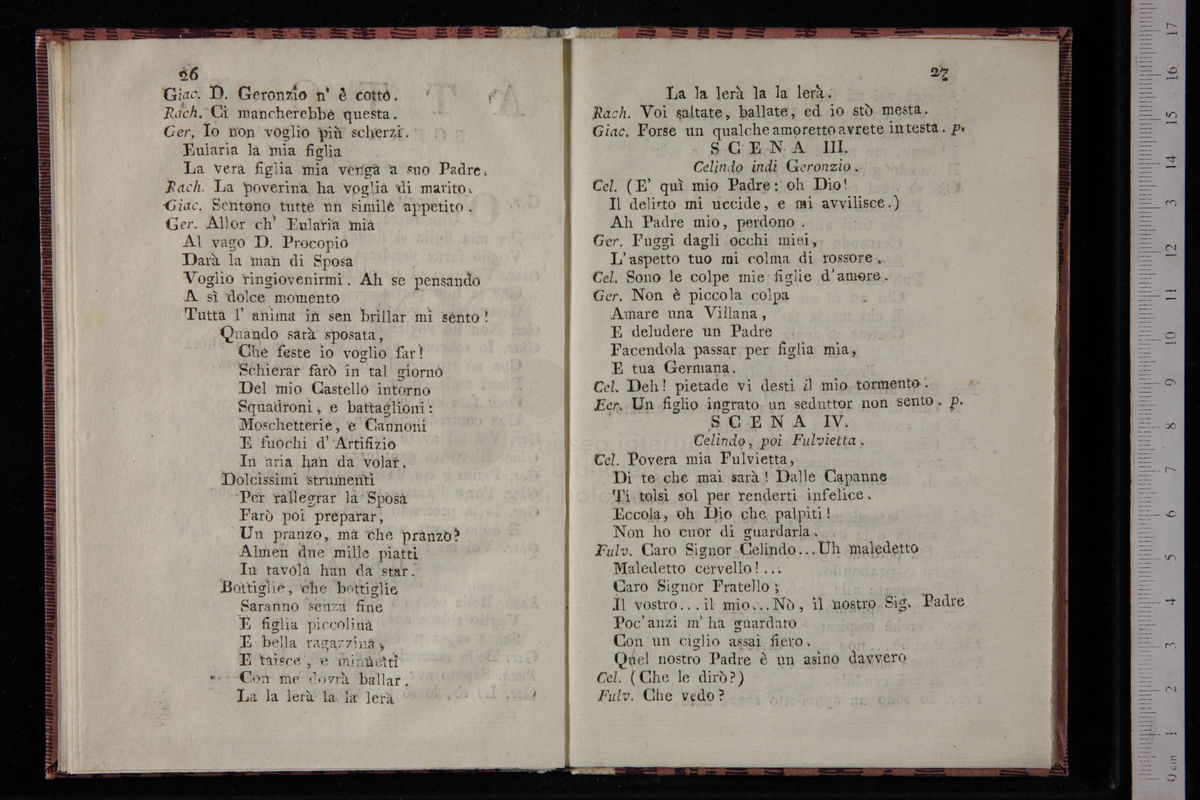 26
Giac. D. Geronzio n' è cotto.
Rach. Ci mancherebbe questa.
Ger. Io non voglio più scherzi.
Eularia la mia figlia
La vera figlia mia venga a suo Padre.
Rach. La poverina ha voglia di marito.
Giac. Sentono tutte un simile appetito.
Ger. Allor ch' Eularia mia
Al vago D. Procopio
Darà la man di Sposa
Voglio ringiovenirmi. Ah se pensando
A sì dolce momento
Tutta l' anima in sen brillar mi sento!
Quando sarà sposata,
Che feste io voglio far!
Schierar farò in tal giorno
Del mio Castello intorno
Squadroni, e battaglioni:
Moschetterie, e Cannoni
E fuochi d' Artifizio
In aria han da volar.
Dolcissimi strumenti
Per rallegrar la Sposa
Farò poi preparar,
Un pranzo, ma che pranzo?
Almen due mille piatti
In tavola han da star.
Bottiglie, che bottiglie
Saranno senza fine
E figlia piccolina
E bella ragazzina,
E taisce, e minuetti
Con me dovrà ballar.
La la lerà la la lerà
27
La la lerà la la lerà.
Rach. Voi saltate, ballate, ed io stò mesta.
Giac. Forse un qualche amoretto avrete in testa. p.
SCENA III.
Celindo indi Geronzio.
Cel. (E' quì mio Padre: oh Dio!
Il delitto mi uccide, e mi avvilisce.)
Ah Padre mio, perdono.
Ger. Fuggi dagli occhi miei,
L'aspetto tuo mi colma di rossore.
Cel. Sono le colpe mie figlie d'amore.
Ger. Non è piccola colpa
Amare una Villana,
E deludere un Padre
Facendola passar per figlia mia,
E tua Germana.
Cel. Deh! pietade vi desti il mio tormento.
Eer. Un figlio ingrato un seduttor non sento. p.
SCENA IV.
Celindo, poi Fulvietta.
Cel. Povera mia Fulvietta,
Di te che mai sarà! Dalle Capanne
Ti tolsi sol per renderti infelice.
Eccola, oh Dio che palpiti!
Non ho cuor di guardarla.
Fulv. Caro Signor Celindo...Uh maledetto
Maledetto cervello!...
Caro Signor Fratello;
Il vostro...il mio...Nò, il nostro Sig. Padre
Poc'anzi m' ha guardato
Con un ciglio assai fiero.
Quel nostro Padre è un asino davvero
Cel. (Che le dirò?)
Fulv. Che vedo?